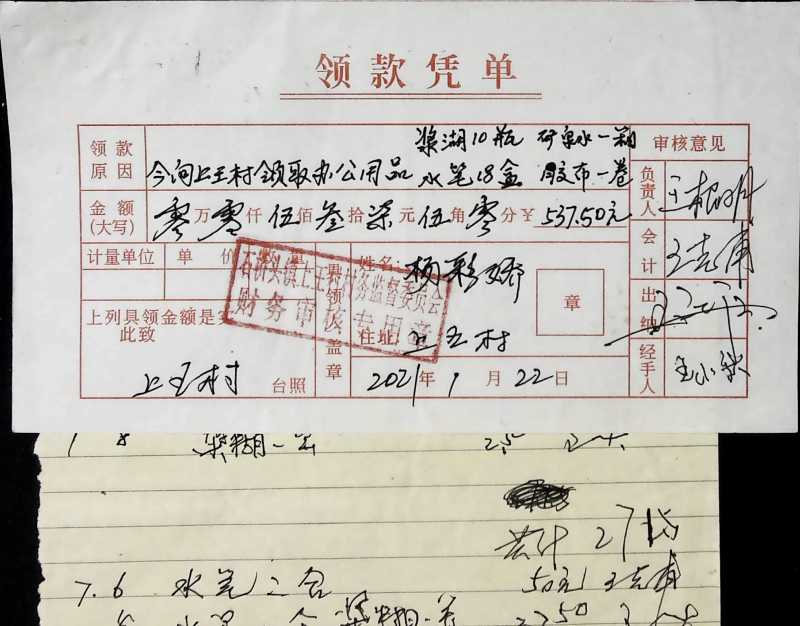 领款凭单
领款原因 今向上王村领取办公用品 浆湖10瓶 矿泉水一箱
水笔18盒 胶布一卷
审核意见
金额(大写) 零万零仟伍佰叁拾柒元伍角零分¥537.50元
负责人 王根
会计 王志甫
出纳
经手人 王小秋
计量单位 单价
石桥头镇上王村村务监督委员会
财务审核专用章
姓名: 杨彩娇
具领人盖章
章
住址: 上王村
上列具领金额是实
此致
上王村 台照
2021年1月22日
浆糊一
共计27
7.6 水笔二合 50元 王志甫
水笔 浆糊一 50